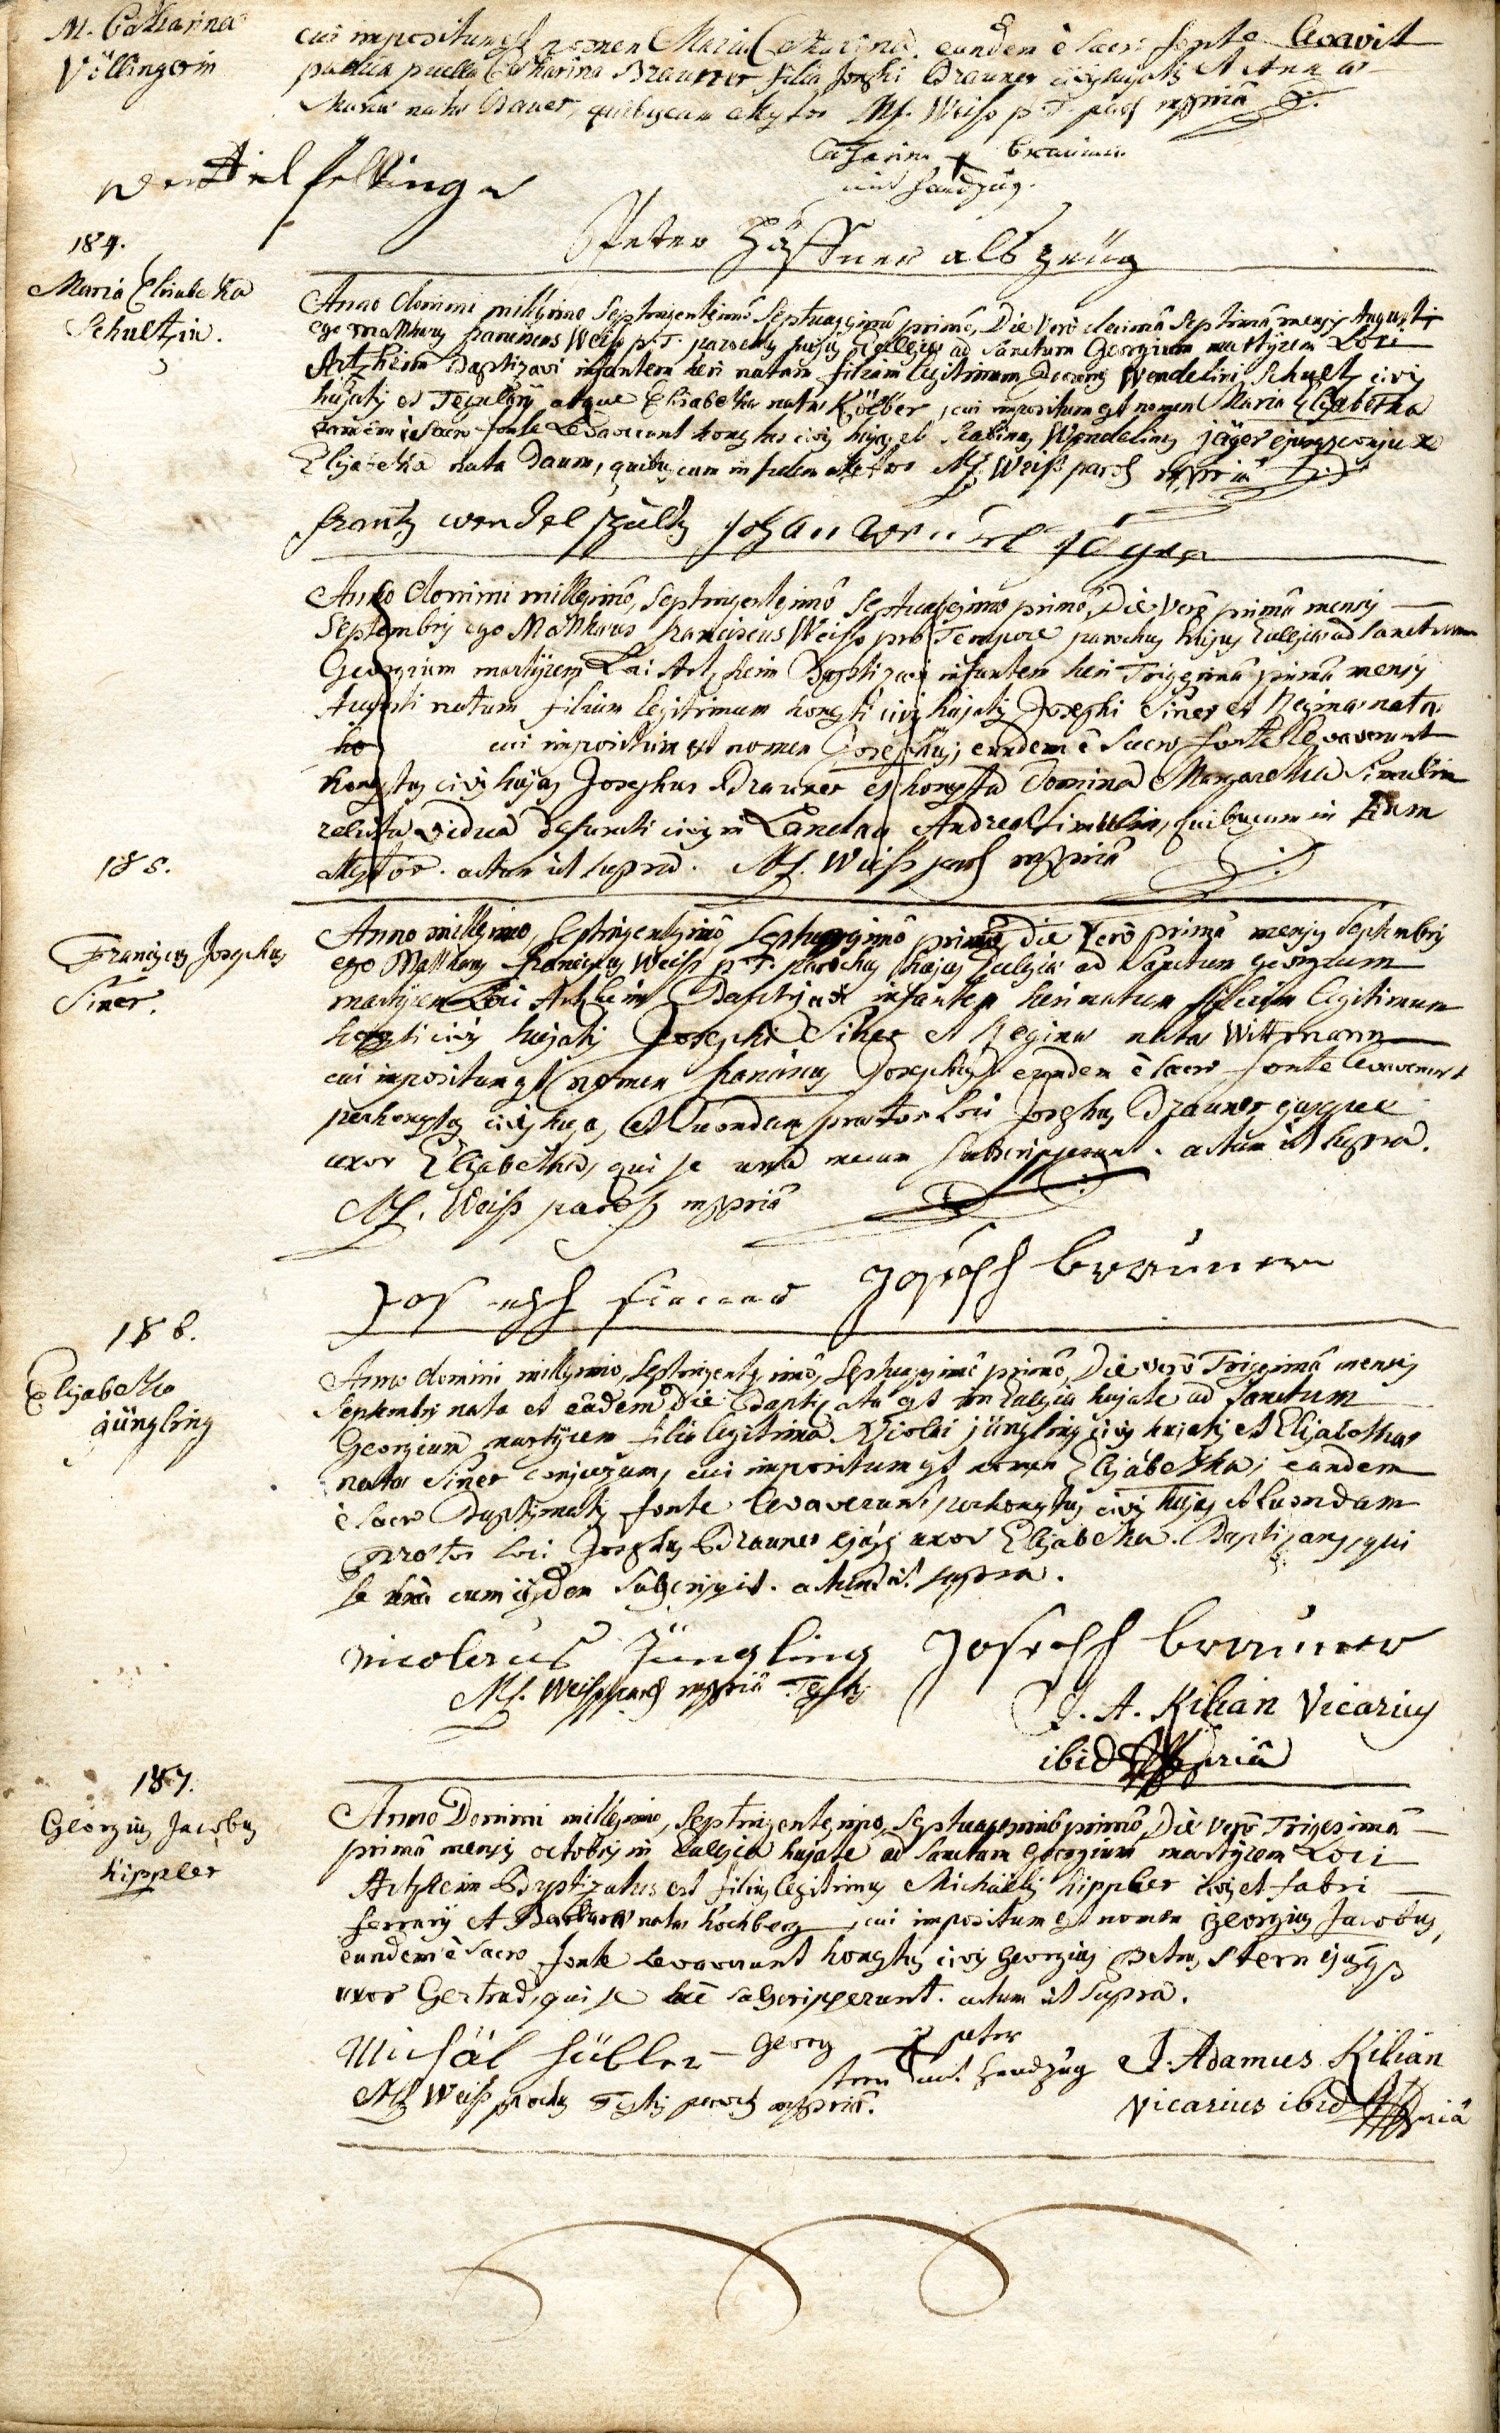 M. Catharina
Völlingerin
cui impositum est nomen Maria Catharina, eandem è sacro fonte levavit
pudica puella Catharina Brauner filia Josephi Brauner civis hujatis et Anna
Maria nata Bauer, quibuscum attestor Mf. Weiss p. T. par. mppriâ
Catharina + Braunerin
ihr handzüg.
Wendel fellinger
Peter Häffner als zeüg
184.
Maria Elisabetha
Schultzin.
Anno domini millesimo septingentesimô septuagesimô primô, Die verò decimâ septimâ mensis Augusti
ego Matthæus franciscus Weiss p. T. parochus hujus Ecclesiæ ad sanctum Georgium martyrem Loci
Artzheim Baptizavi infantem heri natam filiam legitimam Wendelini Schultz civis
hujatis et atque Elisabetha nata Kölber, cui impositum est nomen Maria Elisabetha
eandem è sacro fonte Levaverunt honestus civis hujas et Wendelinus jäger ejusque conjux
Elisabetha nata Daum, quibuscum in fidem attestor Mf. Weiss paroch mppriâ
frantz wendel schültz Johan Wendel Jäger
Anno domini millesimô, septingentesimô septuagesimô primô, Die verò primâ mensis
Septembris ego Matthæus franciscus Weiss pro Tempore parochus hujus Ecclesiæ ad sanctum
Georgium martyrem Loci Artzheim Baptizavi infantem heri Trigesimâ primâ mensis
Augusti natum filium legitimum honesti civis hujatis Josephi Siner et Reginæ nata
ho cui impositum est nomen Josephus, eundem è sacro fonte levaverunt
honestus civis hujas Josephus Brauner et honesta Domina Margaretha
relicta vidua defuncti civis in Landau Andreæ quibuscum in fidem
attestor. actum ut supra. Mf. Weiss paroch mppriâ
185.
Franciscus Josephus
Siner.
Anno millesimo, septingentesimô septuagesimô primô, die verò primâ mensis Septembris
ego Matthæus franciscus Weiss p. T. parochus hujus Ecclesiæ ad sanctum georgium
martyrem Loci Artzheim Baptizavi infantem heri natum filium legitimum
honesti civis hujatis Josephi Siner et Regina nata Wittmann
cui impositum est nomen franciscus Josephus eundem è sacro fonte levaverunt
perhonestus civis hujas et Quondam prætor Loci Josephus Brauner ejusque
uxor Elisabetha, qui se una mecum subscripserunt. actum ut supra.
Mf. Weiss paroch mppriâ
Joseph sinner Joseph brauner
186.
Elisabetha
jüngling
Anno domini millesimo, septingentesimô, septuagesimô primô, Die verò Trigesimâ mensis
Septembris nata et eâdem Die Baptizata est in Ecclesia hujate ad sanctum
Georgium martyrem filia legitima Nicolai jüngling civis hujatis et Elisabetha
nata Siner conjugum, cui impositum est nomen Elisabetha; eandem
è sacro Baptismatis fonte levaverunt perhonestus civis hujas et Quondam
prætor loci Josephus Brauner ejusque uxor Elisabetha. Baptizans, qui
se unà cum iisdem subscripsit. actum ut supra.
Nicolaus Jüngling Joseph brauner
Mf. Weiss paroch mppriâ Testis
J. A. Kilian Vicarius
ibid mppriâ
187.
Georgius Jacobus
hippler
Anno Domini millesimo, septingentesimo, septuagesimô primô, Die verò Trigesimâ
primâ mensis octobris in Ecclesia hujate ad sanctum Georgium martyrem Loci
Artzheim Baptizatus est filius legitimus Michaëlis hippler civis et fabri
ferrarij et Barbara nata hochberg, cui impositum est nomen georgius Jacobus,
eundem è sacro fonte levaverunt honestus civis Georgius Petrus Stern ejusque
uxor Gertrud, qui se subscripserunt. actum ut supra.
Michäl hübler Georg + peter
stern handzüg J. Adamus Kilian
Mf Weiss parochus Testis mppriâ. Vicarius ibid mppriâ